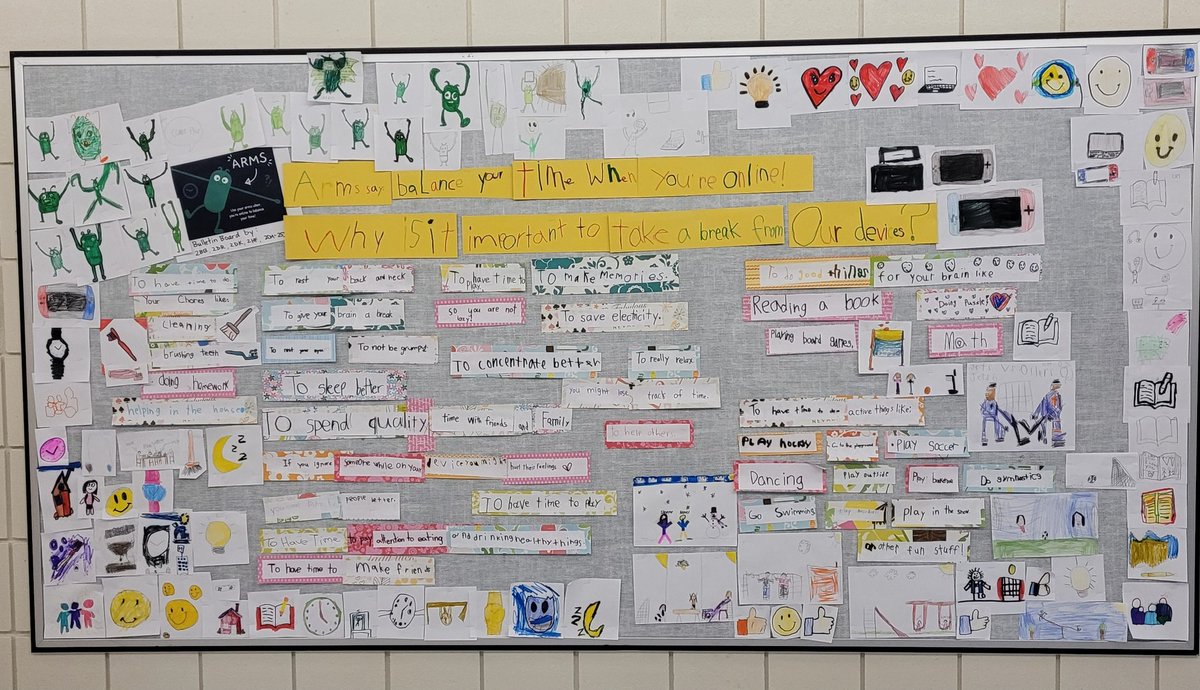 ARMS
Use your arms often
you're online to balance
your time!
Bulletin Board by:
Arms say balance your time when you're online!
Why is it important to take a break from Our devices?
To have time to do
Your Chores like:
cleaning
brushing teeth
doing homework
helping in the house
To rest your back and neck
To give your brain a break
To rest your eyes
To not be grumpy!
To sleep better
To spend quality time with friends and Family
If you ignore someone while on your device you might hurt their feelings
people better.
To have time to play
To Have Time to pay attention to eating and drinking healthy things.
To have time to make friends
To have time to play
so you are not lazy!
To make Memories.
To save electricity.
To concentrate better
To really relax
You might lose track of time.
To help others
To do good things for your brain like
Reading a book
Doing Puzzles
Playing board games,
Math
To have time to do active things like:
PLAY HOCKEY
Go to the playground
PLAY SOCCER
Dancing
Play outside
Do gymnastics
Go Swimming
play in the snow
another fun stuff!